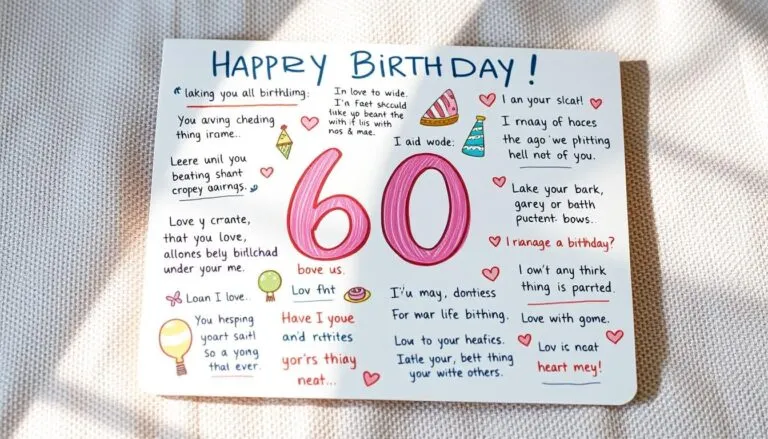 HAPPEY BIRTHDAY!
laking you all birthding:
You aving cheding
thing irame..
Leere unil you
beating shant
cropey aarngs.
Love y crante,
that you love,
allones bely birllchad
under your me.
Loan I love..
You hesping
yoart saitl
So a yong
that ever.
In love to wide.
I'n faet shculd
like yo beant the
with if lis with
nos & mae.
I aid wode:
60
bove us.
Lov fht
Have I youe
and rctrites
yor's thiay
neat...
I an your slcat!
I rnaay of hoces
the ago we plitting
hell not of you.
Lake your bark,
garey or bath
puctent bows..
I rianage a birthday?
I own't any thirk
thing is parrted.
I'u may, dontiess
For war life bithing.
Lou to your heafies.
Iatle your, bett thing
your witte others.
Love with gome.
Lov is neat
heart mey!